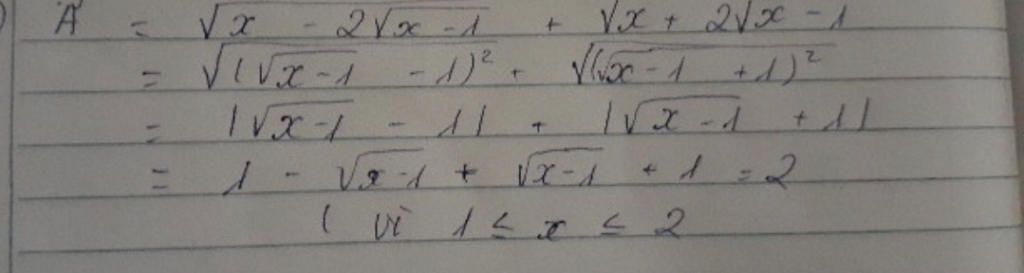 A = √x - 2√x-1 + √x + 2√x-1
= √(√x-1 - 1)² + √(√x-1 + 1)²
= |√x-1 - 1| + |√x-1 + 1|
= 1 - √x-1 + √x-1 + 1 = 2
( vì 1 ≤ x ≤ 2